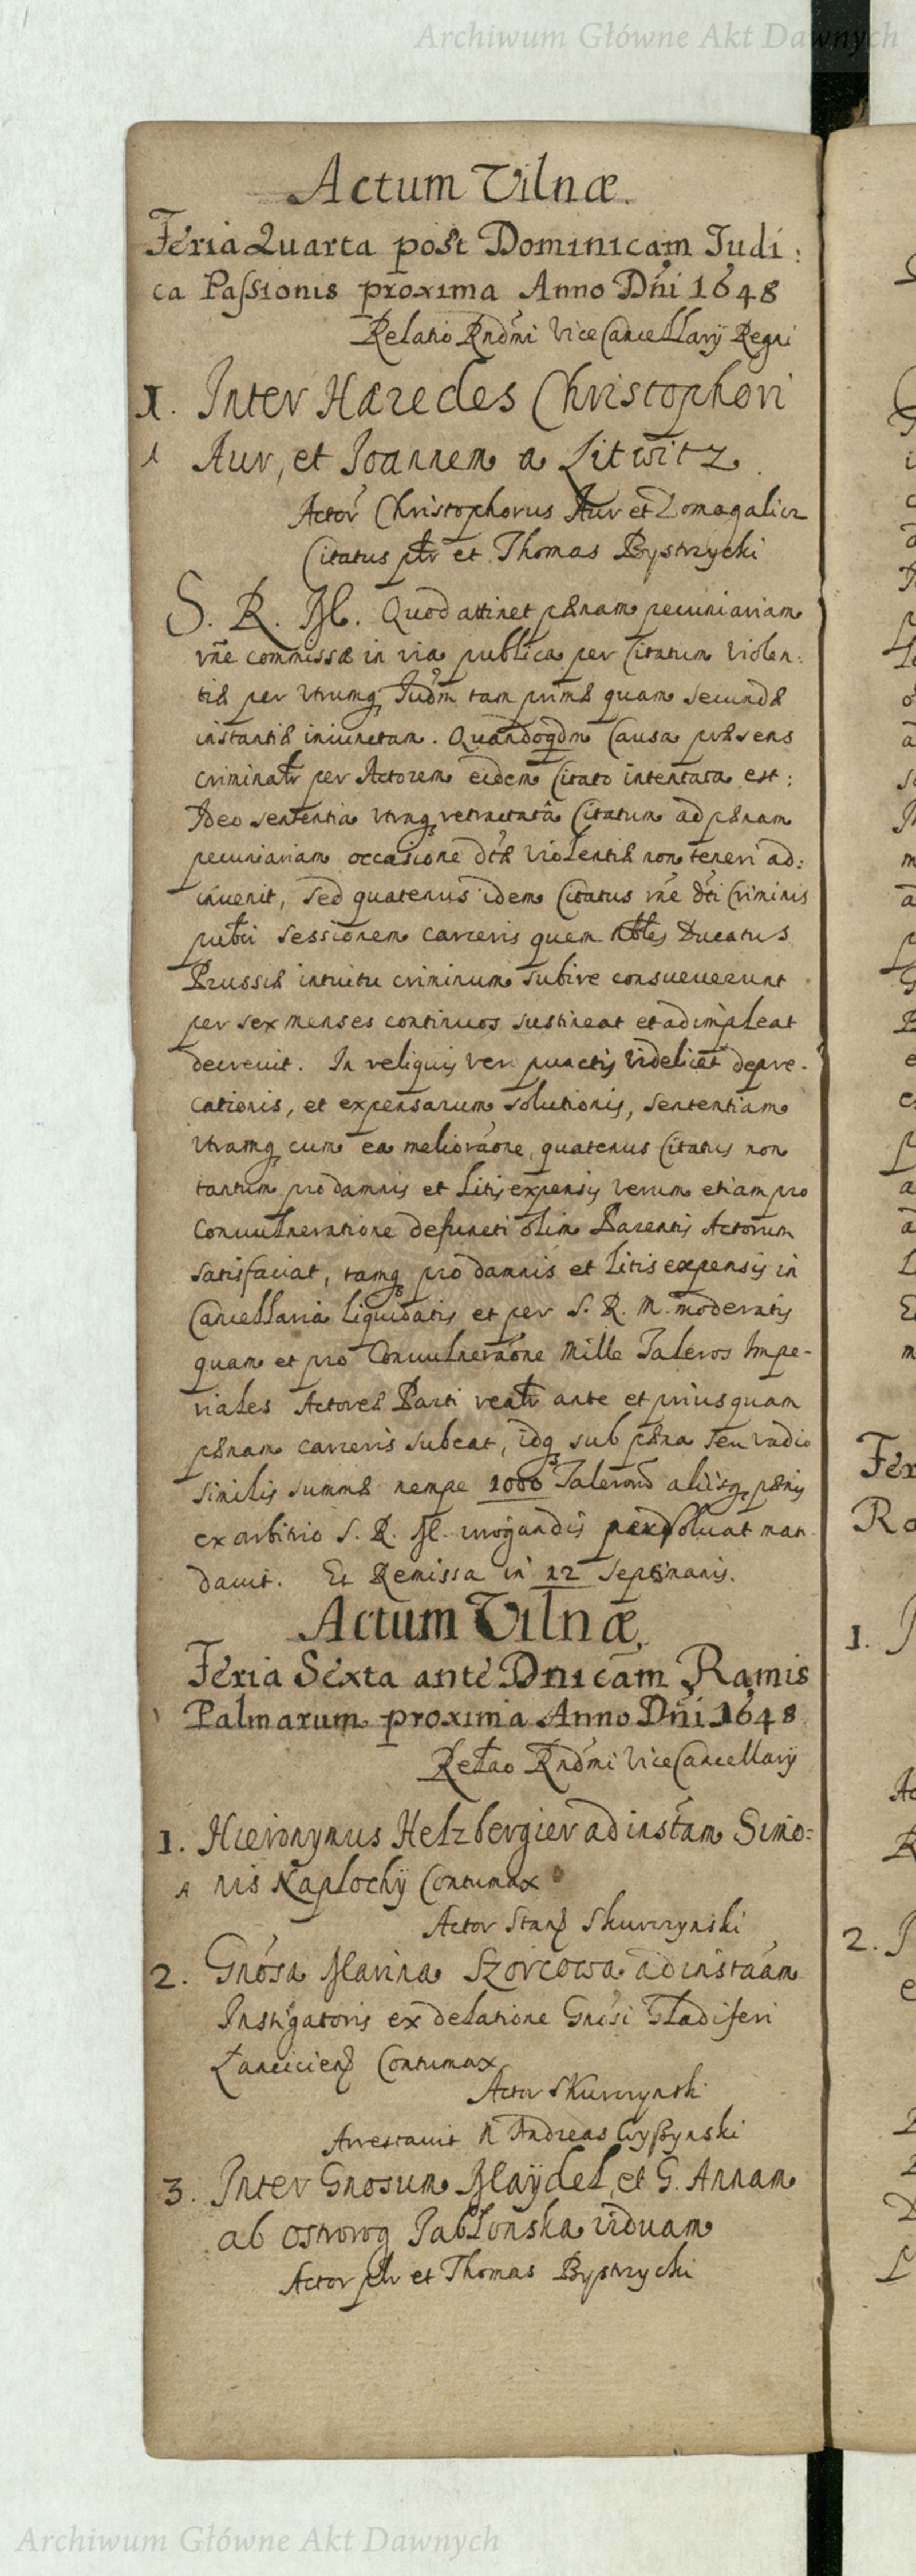 Archiwum Główne Akt Dawnych
Actum Vilnæ.
Feria Quarta post Dominicam Judi:
ca Passionis proxima Anno Dñi 1648
Relatio Rndmi ViceCancellarÿ Regni
1. Inter Hæredes Christophori
Aur, et Joannem a Litwitz.
Actor Christophorus Aur et Domagalicz
Citatus ptr et Thomas Bystrzycki
S. R. M. Quod attinet pænam pecuniariam
rñe commissæ in via publica per Citatum violen:
tiæ per utrumq Judm tam primæ quam secundæ
instantiæ iniunctam. Quandoqdm Causa præsens
criminatr per Actorem eidem Citato intentata est:
Ideo sententia utraq retractata Citatum ad pænam
pecuniariam occasione dtæ violentiæ non teneri ad:
invenit, sed quatenus idem Citatus rñe dti Criminis
publi sessionem carceris quem Nbles Ducatus
Prussiæ intuitu criminum subire consueverunt
per sex menses continuos sustineat et adimpleat
decrevit. In reliquis vero punctis videlicet depre-
cationis, et expensarum solutionis, sententiam
utramq cum ea melioraone, quatenus Citatus non
tantum pro damnis et Litis expensis verum etiam pro
Convulneratione defuncti olim Parentis Actorum
satisfaciat, tamq pro damnis et litis expensis in
Cancellaria liquidatis et per S. R. M. moderatis
quam et pro Convulneraone Mille Taleros Impe-
riales Actoreæ Parti reatr ante et priusquam
pænam carceris subeat, idq sub pæna seu vadio
similis summæ nempe 1000 Talerorũ aliisq pænis
ex arbitrio S. R. M. irrogandis persoluat man
davit. Et Remissa in 12 Septimanis.
Actum Vilnæ.
Feria Sexta ante Dnicam Ramis
Palmarum proxima Anno Dñi 1648
Relao Rndmi ViceCancellarÿ
1. Hieronymus Helzbergier ad instam Simo:
nis Naplochÿ Contumax
Actor Stans Skurczynski
2. Gnosa Marina Szorcowa ad instaam
Instigatoris ex delatione Gnosi Gladiferi
Lanciciens Contumax
Actor Skurczynski
Arrestavit N Andreas Wyszynski
3. Inter Gnosum Maÿdel, et G. Annam
ab Ostrorog Jablonska viduam
Actor ptr et Thomas Bystrzycki
Archiwum Główne Akt Dawnych